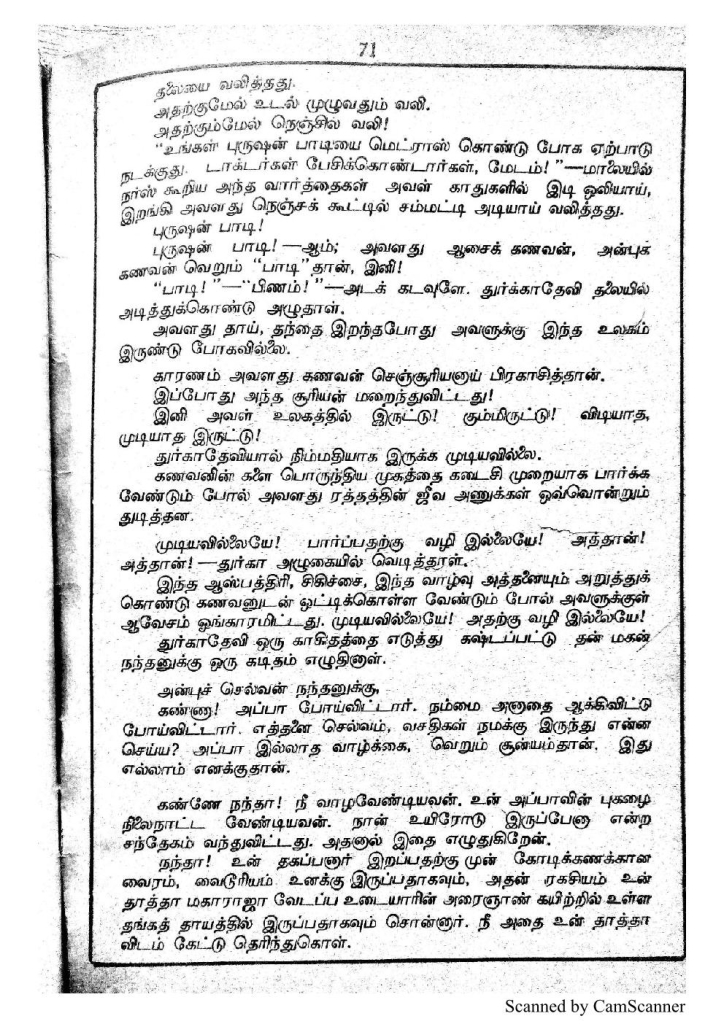 71
தலையை வலித்தது.
அதற்குமேல் உடல் முழுவதும் வலி.
அதற்கும்மேல் நெஞ்சில் வலி!
“உங்கள் புருஷன் பாடியை மெட்ராஸ் கொண்டு போக ஏற்பாடு
நடக்குது. டாக்டர்கள் பேசிக்கொண்டார்கள், மேடம்!”—மாலையில்
நர்ஸ் கூறிய அந்த வார்த்தைகள் அவள் காதுகளில் இடி ஒலியாய்,
இறங்கி அவளது நெஞ்சக் கூட்டில் சம்மட்டி அடியாய் வலித்தது.
புருஷன் பாடி!
புருஷன் பாடி!—ஆம்; அவளது ஆசைக் கணவன், அன்புக்
கணவன் வெறும் “பாடி” தான், இனி!
“பாடி!”—“பிணம்!”—அடக் கடவுளே. துர்க்காதேவி தலையில்
அடித்துக்கொண்டு அழுதாள்.
அவளது தாய், தந்தை இறந்தபோது அவளுக்கு இந்த உலகம்
இருண்டு போகவில்லை.
காரணம் அவளது கணவன் செஞ்சூரியனாய் பிரகாசித்தான்.
இப்போது அந்த சூரியன் மறைந்துவிட்டது!
இனி அவள் உலகத்தில் இருட்டு! கும்மிருட்டு! விடியாத,
முடியாத இருட்டு!
துர்காதேவியால் நிம்மதியாக இருக்க முடியவில்லை.
கணவனின் களை பொருந்திய முகத்தை கடைசி முறையாக பார்க்க
வேண்டும் போல் அவளது ரத்தத்தின் ஜீவ அணுக்கள் ஒவ்வொன்றும்
துடித்தன.
முடியவில்லையே! பார்ப்பதற்கு வழி இல்லையே! அத்தான்!
அத்தான்!—துர்கா அழுகையில் வெடித்தாள்.
இந்த ஆஸ்பத்திரி, சிகிச்சை, இந்த வாழ்வு அத்தனையும் அறுத்துக்
கொண்டு கணவனுடன் ஒட்டிக்கொள்ள வேண்டும் போல் அவளுக்குள்
ஆவேசம் ஓங்காரமிட்டது. முடியவில்லையே! அதற்கு வழி இல்லையே!
துர்காதேவி ஒரு காகிதத்தை எடுத்து கஷ்டப்பட்டு தன் மகன்
நந்தனுக்கு ஒரு கடிதம் எழுதினாள்.
அன்புச் செல்வன் நந்தனுக்கு,
கண்ணா! அப்பா போய்விட்டார். நம்மை அனாதை ஆக்கிவிட்டு
போய்விட்டார். எத்தனை செல்வம், வசதிகள் நமக்கு இருந்து என்ன
செய்ய? அப்பா இல்லாத வாழ்க்கை, வெறும் சூன்யம்தான். இது
எல்லாம் எனக்குதான்.
கண்ணே நந்தா! நீ வாழவேண்டியவன். உன் அப்பாவின் புகழை
நிலைநாட்ட வேண்டியவன். நான் உயிரோடு இருப்பேனா என்ற
சந்தேகம் வந்துவிட்டது. அதனால் இதை எழுதுகிறேன்.
நந்தா! உன் தகப்பனார் இறப்பதற்கு முன் கோடிக்கணக்கான
வைரம், வைடூரியம் உனக்கு இருப்பதாகவும், அதன் ரகசியம் உன்
தாத்தா மகாராஜா வேடப்ப உடையாரின் அரைஞாண் கயிற்றில் உள்ள
தங்கத் தாயத்தில் இருப்பதாகவும் சொன்னார். நீ அதை உன் தாத்தா
விடம் கேட்டு தெரிந்துகொள்.
Scanned by CamScanner